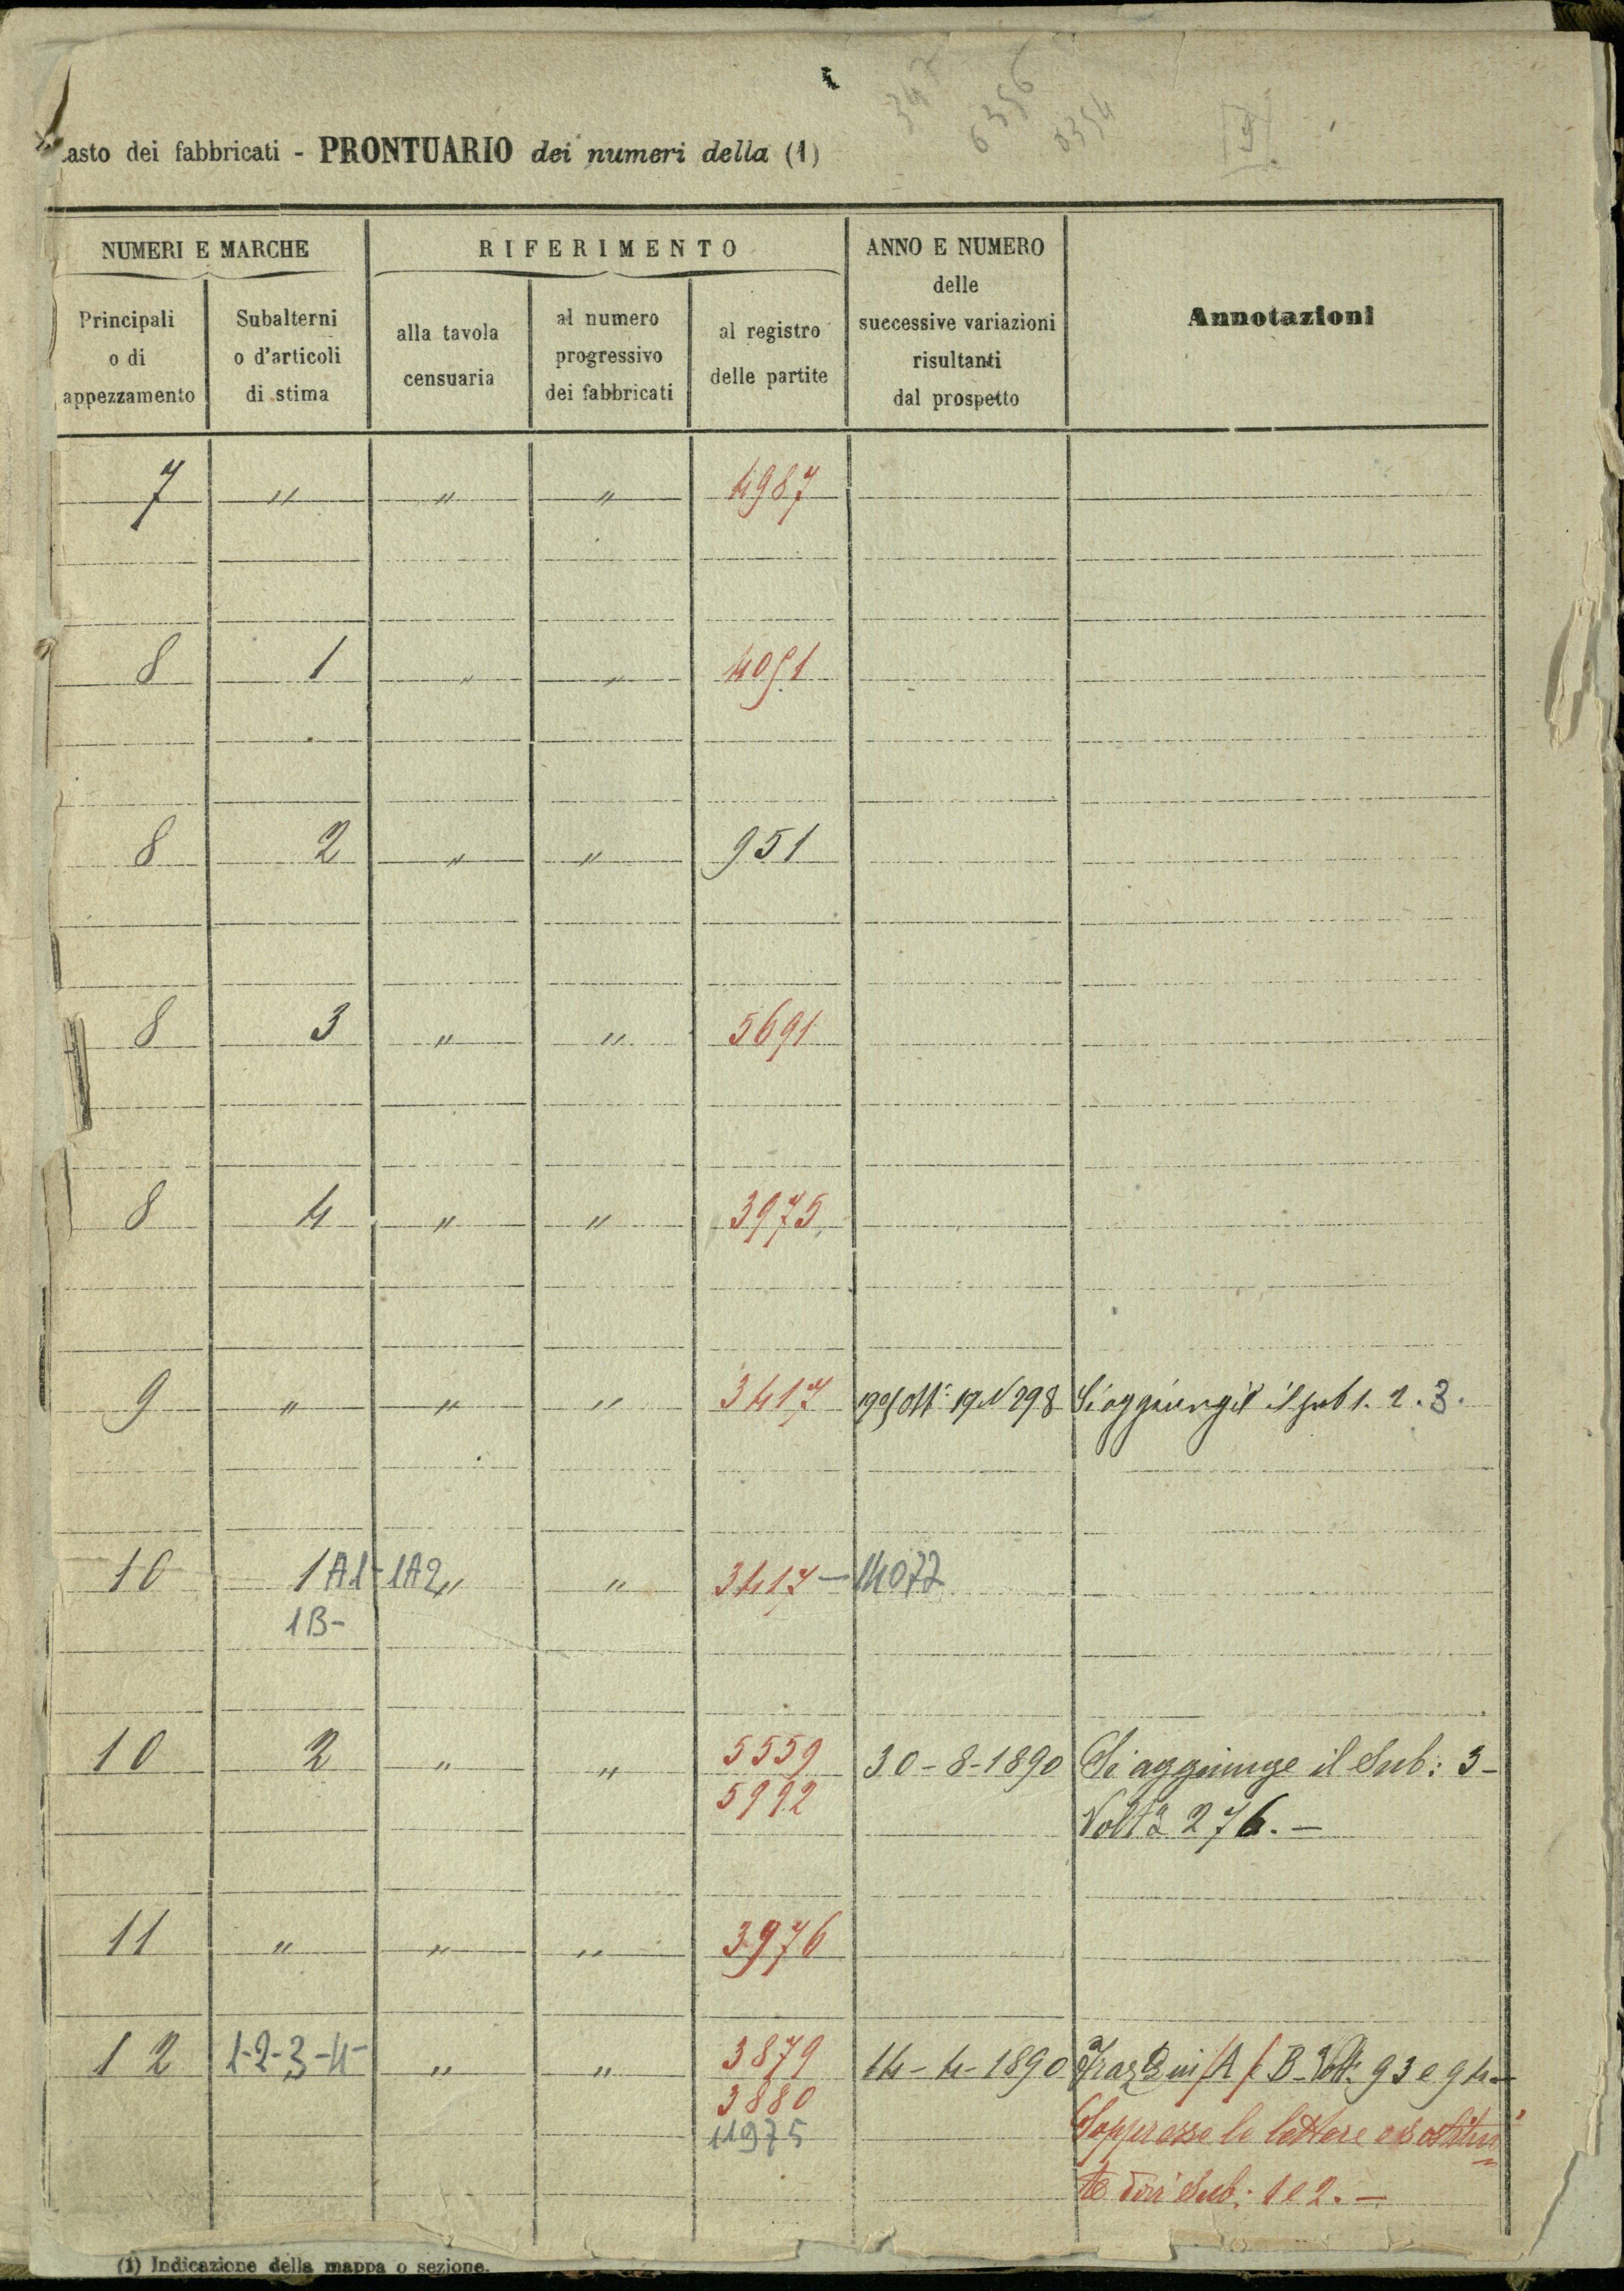 asto dei fabbricati - PRONTUARIO dei numeri della (1)
347
6356
6354
9
NUMERI E MARCHE
RIFERIMENTO
ANNO E NUMERO
delle
successive variazioni
risultanti
dal prospetto
Annotazioni
Principali
o di
appezzamento
Subalterni
o d'articoli
di stima
alla tavola
censuaria
al numero
progressivo
dei fabbricati
al registro
delle partite
7 " " " 4987
8 1 " " 4051
8 2 " " 951
8 3 " " 5691
8 4 " " 3975
9 " " " 3417 N 298 Si aggiunge il sub 1. 2. 3.
10 1A1-1A2 " " 3417 - 14077
1B-
10 2 " " 5559 30-8-1890 Si aggiunge il Sub: 3-
5992 Volt 276. -
11 " " " 3976
12 1-2-3-4- " " 3879 14-4-1890 in A e B 93 e 94 -
3880
11975 Soppresse le lettere e sostitui
te coi Sub: 1 e 2. -
(1) Indicazione della mappa o sezione.